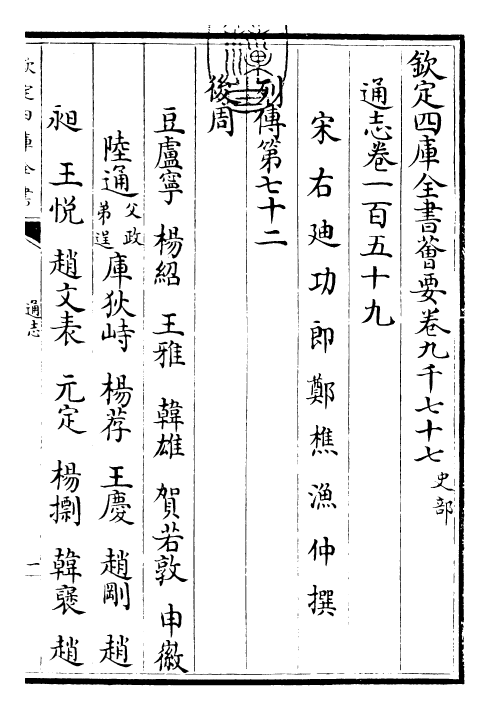 欽定四庫全書薈要卷九千七十七 史部
通志卷一百五十九
宋右廸功郎鄭樵漁仲撰
列傳第七十二
後周
豆盧寧 楊紹 王雅 韓雄 賀若敦 申徽
陸通 父政 弟逞 庫狄峙 楊荐 王慶 趙剛 趙
昶 王悦 趙文表 元定 楊摽 韓襃 趙
欽定四庫全書
通志
一